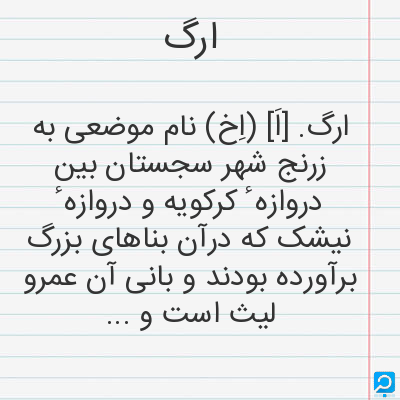 ارگ
ارگ. [اَ] (اِخ) نام موضعی به
زرنج شهر سجستان بین
دروازه ٔ کرکویه و دروازه ٔ
نیشک که درآن بناهای بزرگ
برآورده بودند و بانی آن عمرو
لیث است و ...